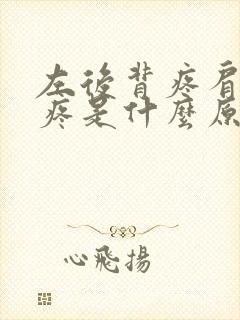 左後背疼肩
疼是什麼原
心飛揚